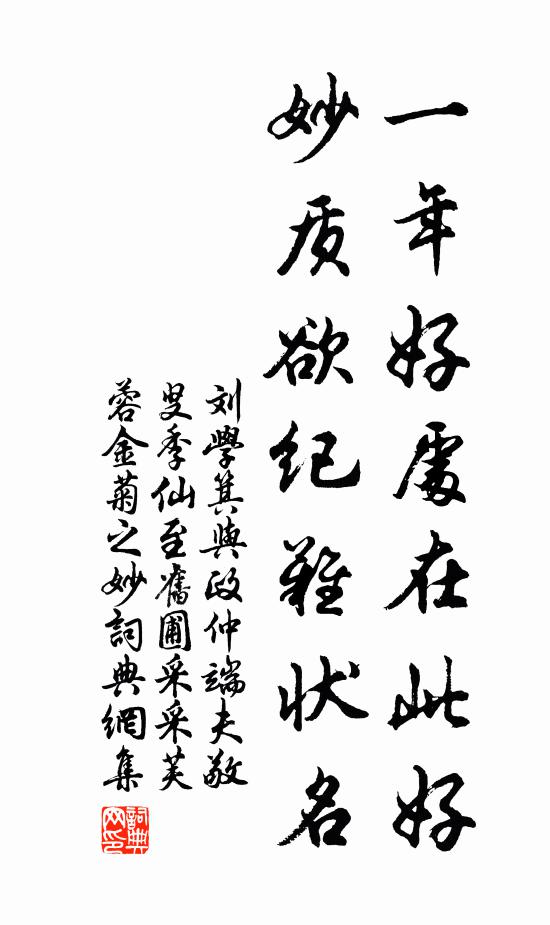 一年好處在此好
妙质欲纪難状名
刘學箕與政仲端夫敬
叟季仙至舊圃采采芙
蓉金菊之妙詞典網集
詞典网印